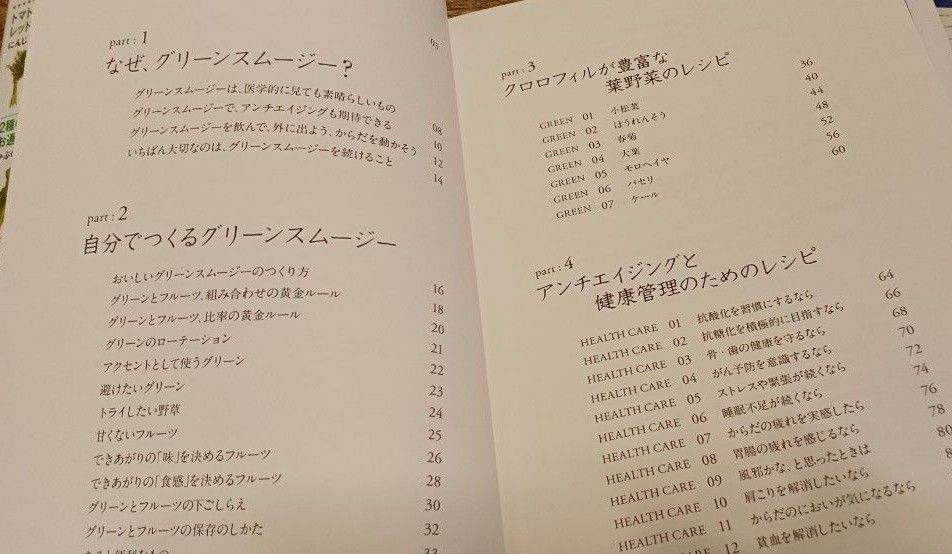 part : 1
なぜ、グリーンスムージー?
グリーンスムージーは、医学的に見ても素晴らしいもの 08
グリーンスムージーで、アンチエイジングも期待できる 10
グリーンスムージーを飲んで、外に出よう、からだを動かそう 12
いちばん大切なのは、グリーンスムージーを続けること 14
part : 2
自分でつくるグリーンスムージー
おいしいグリーンスムージーのつくり方 16
グリーンとフルーツ、組み合わせの黄金ルール 18
グリーンとフルーツ、比率の黄金ルール 20
グリーンのローテーション 21
アクセントとして使うグリーン 22
避けたいグリーン 23
トライしたい野草 24
甘くないフルーツ 25
できあがりの「味」を決めるフルーツ 26
できあがりの「食感」を決めるフルーツ 28
グリーンとフルーツの下ごしらえ 30
グリーンとフルーツの保存のしかた 32
33
part : 3
クロロフィルが豊富な
葉野菜のレシピ 36
GREEN 01 小松菜 40
GREEN 02 ほうれんそう 44
GREEN 03 春菊 48
GREEN 04 大葉 52
GREEN 05 モロヘイヤ 56
GREEN 06 パセリ 60
GREEN 07 ケール
part : 4
アンチエイジングと
健康管理のためのレシピ
HEALTH CARE 01 抗酸化を習慣にするなら 64
HEALTH CARE 02 抗糖化を積極的に目指すなら 66
HEALTH CARE 03 骨・歯の健康を守るなら 68
HEALTH CARE 04 がん予防を意識するなら 70
HEALTH CARE 05 ストレスや緊張が続くなら 72
HEALTH CARE 06 睡眠不足が続くなら 74
HEALTH CARE 07 からだの疲れを実感したら 76
HEALTH CARE 08 胃腸の疲れを感じるなら 78
HEALTH CARE 09 風邪かな、と思ったときは 80
HEALTH CARE 10 肩こりを解消したいなら
HEALTH CARE 11 からだのにおいが気になるなら
12 貧血を解消したいなら